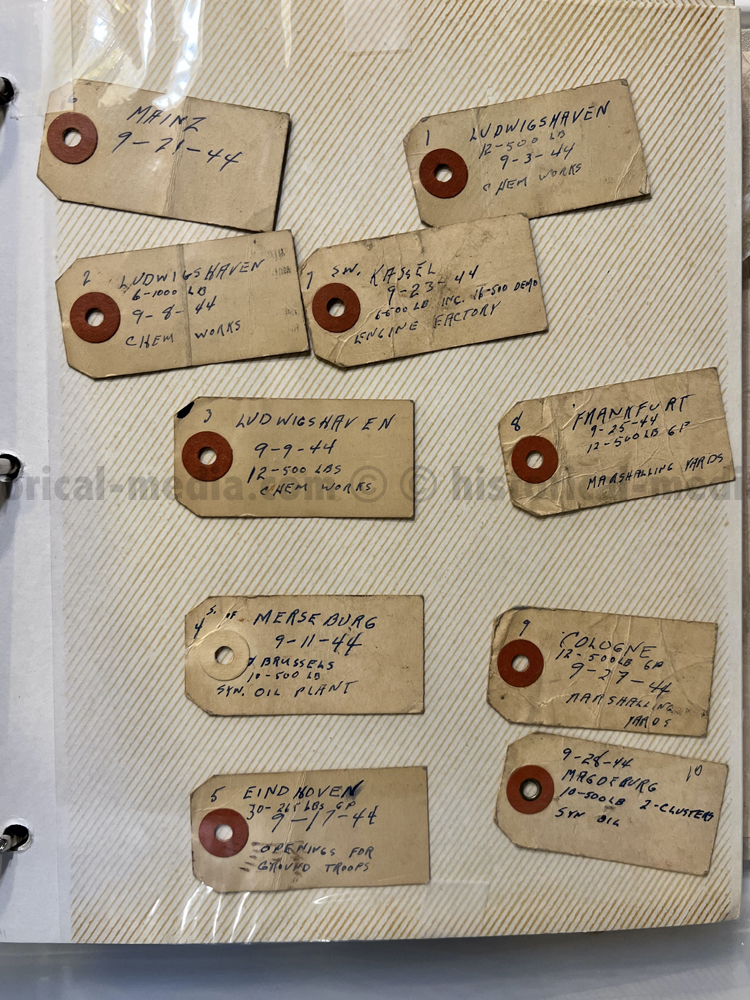 6
MAINZ
9-21-44
1 LUDWIGSHAVEN
12-500 LB
9-3-44
CHEM WORKS
2 LUDWIGSHAVEN
6-1000 LB
9-8-44
CHEM WORKS
7 SW. KASSEL
9-23-44
6-500 LB INC. 16-500 DEMO
ENGINE FACTORY
3 LUDWIGSHAVEN
9-9-44
12-500 LBS
CHEM WORKS
8 FRANKFURT
9-25-44
12-500 LB GP
MARSHALLING YARDS
4 S. OF MERSEBURG
9-11-44
BRUSSELS
10-500 LB
SYN. OIL PLANT
9
COLOGNE
12-500 LB GP
9-27-44
MARSHALLING
YARDS
5 EINDHOVEN
30-265 LBS GP
9-17-44
OPENINGS FOR
GROUND TROOPS
9-28-44 10
MAGDEBURG
10-500LB 2-CLUSTERS
SYN OIL
orical-media.com © © historical-medi